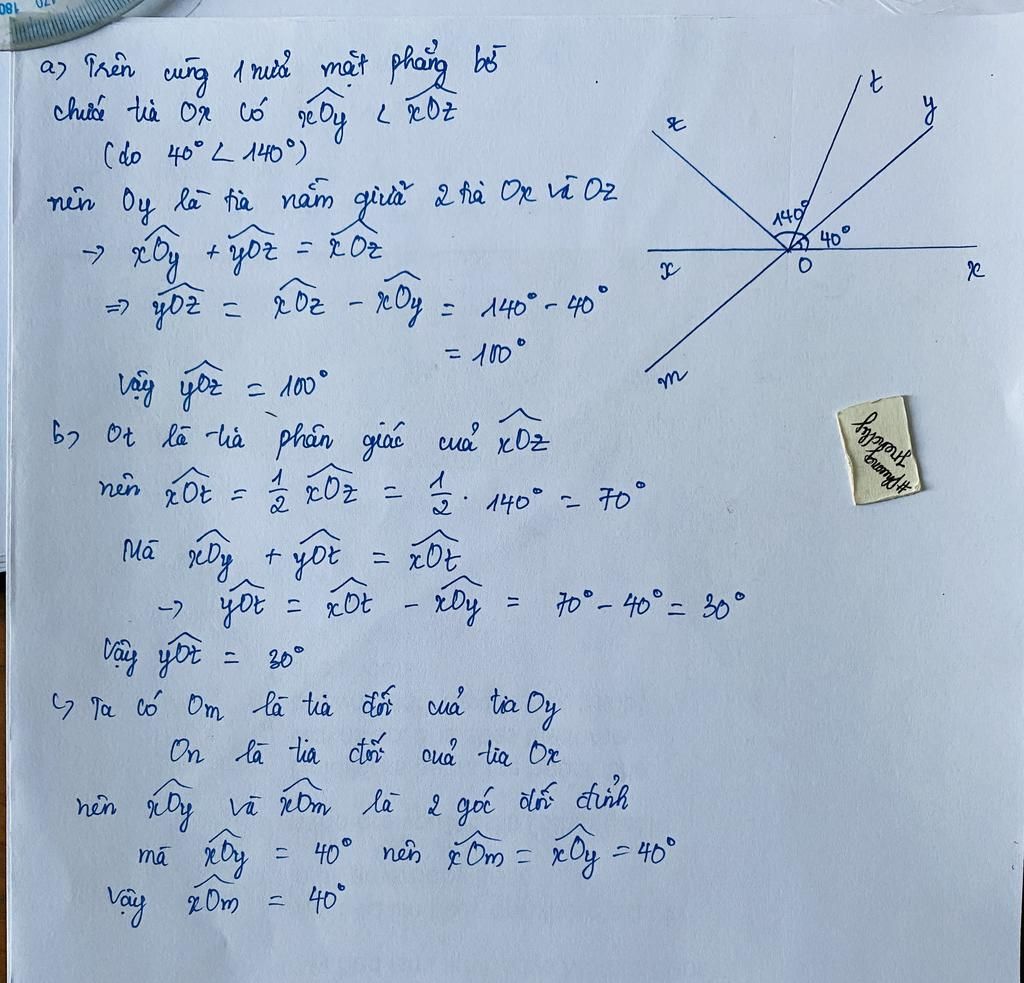 a) Trên cùng 1 nửa mặt phẳng bờ
chứa tia Ox có xOy < xOz
(do 40° < 140°)
nên Oy là tia nằm giữa 2 tia Ox và Oz
→ xOy + yOz = xOz
⇒ yOz = xOz - xOy = 140° - 40°
= 100°
Vậy yOz = 100°
b) Ot là tia phân giác của xOz
nên xOt = 1/2 xOz = 1/2 . 140° = 70°
Mà xOy + yOt = xOt
→ yOt = xOt - xOy = 70° - 40° = 30°
Vậy yOt = 30°
c) Ta có Om là tia đối của tia Oy
On là tia đối của tia Ox
nên xOy và xOm là 2 góc đối đỉnh
mà xOy = 40° nên xOm = xOy = 40°
Vậy xOm = 40°
t
y
z
140°
40°
x
O
x
m
#phuong
180
170